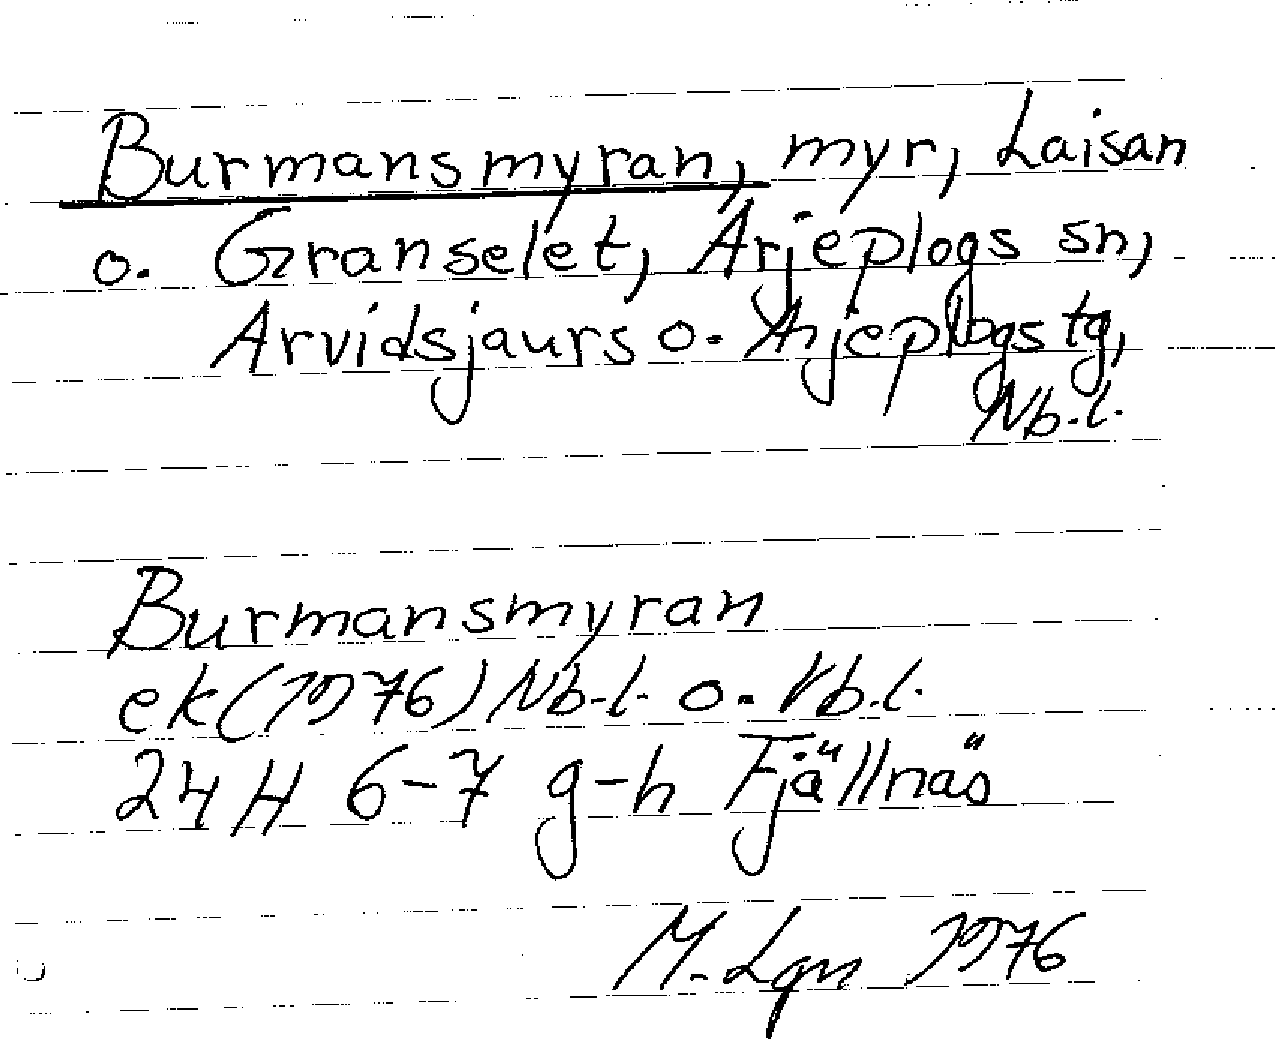 Burmansmyran, myr, Laisan
o. Granselet, Arjeplogs sn,
Arvidsjaurs o. Arjeplogs tg,
Nb.l.
Burmansmyran
ek (1976) Nb.l. o. Vb.l.
24H 6-7 g-h Fjällnäs
M. Lgn 1976